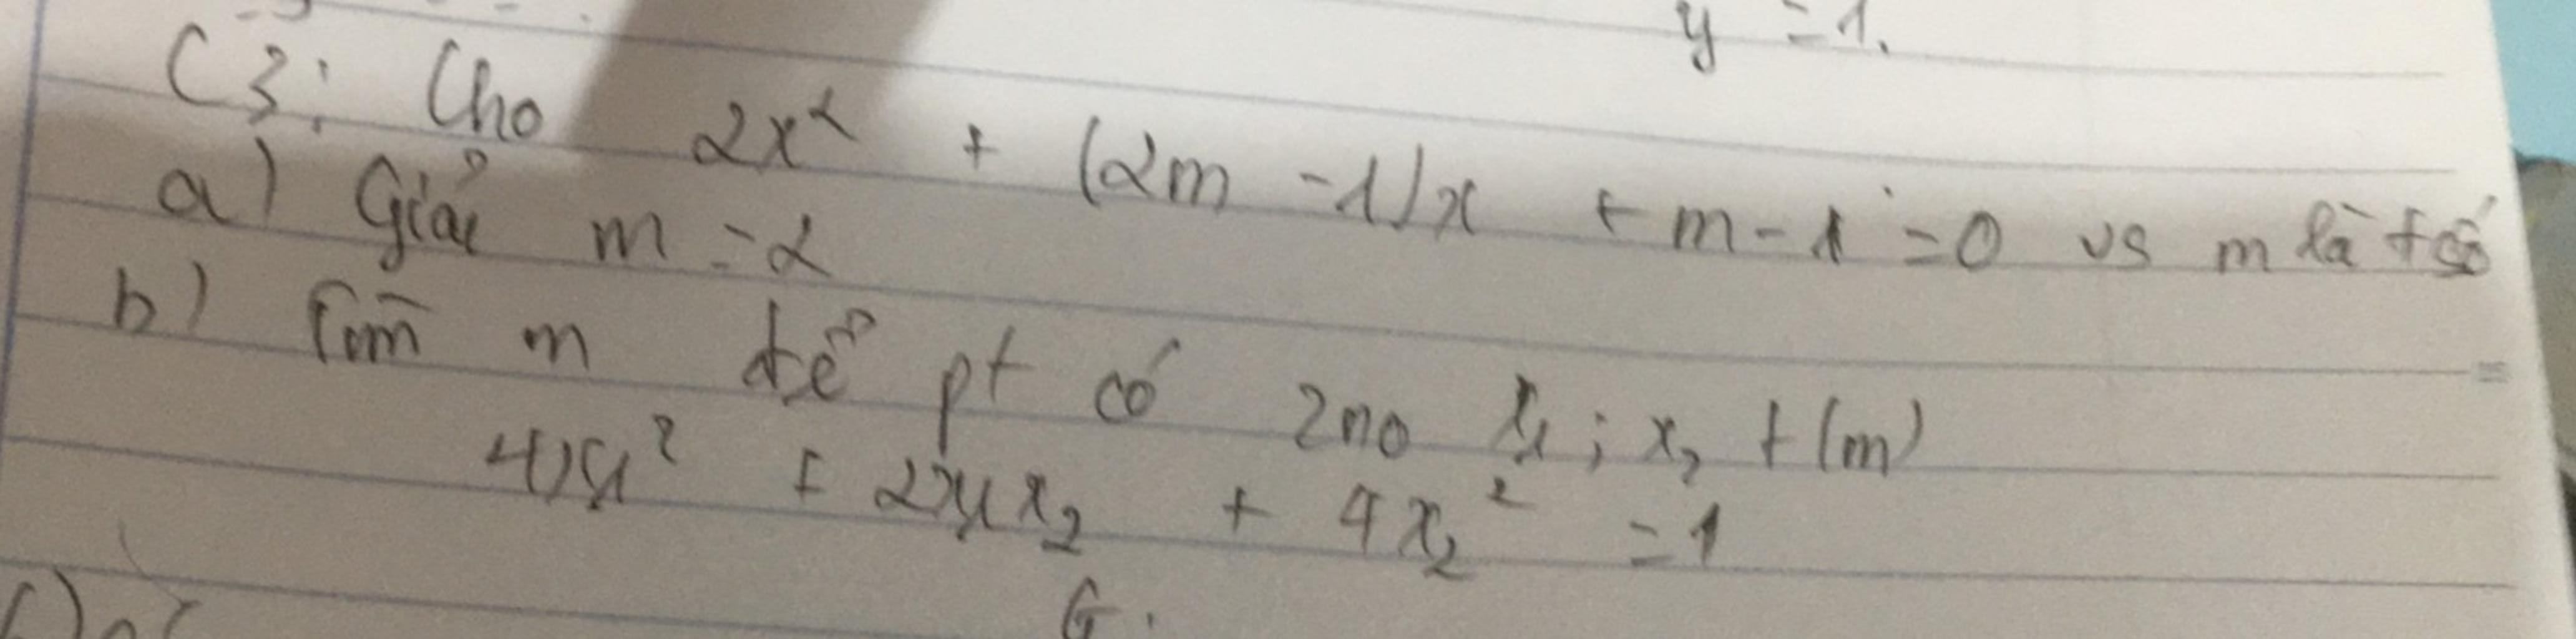 y = 1.
C3: Cho 2x² + (2m - 1)x + m - 1 = 0 vs m là t số
a) Giải m = 2
b) Tìm m để pt có 2 no x₁ ; x₂ t(m)
4x₁² + 2x₁x₂ + 4x₂² = 1
G.